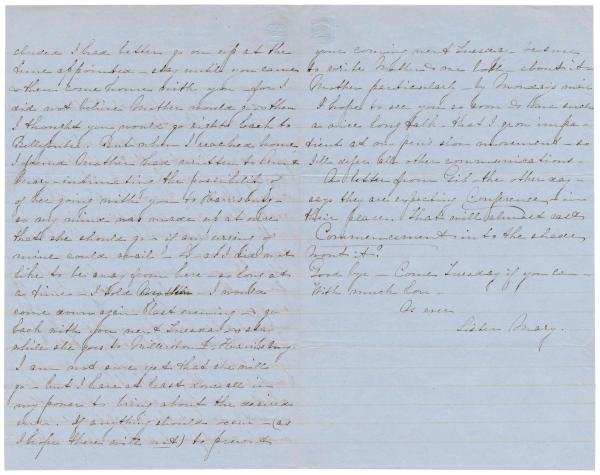 cluded I had better go on up at the
time appointed - stay until you came
& then come home with you - for I
did not believe Mother would go & then
I thought you would go right back to
Bellefonte. But when I reached home
I found Mother had written to
intimating the possibility
of her going with you to Harrisburg -
so my mind was made up at once
that she should go if any urging of
mine could avail - so as I did not
like to be away from here so long at
a time - I told I would
come down again last evening & go
back with you next Tuesday or stay
while she goes to Millerstown & Harrisburg
I am not sure yet that she will
go but I have at least done all in
my power to bring about the desired
end. If anything should occur - (as
I hope there will not) to prevent
your coming next Tuesday - be sure
to write Mother & me both about it -
Mother particularly - by Monday's mail
I hope to see you so soon & have such
a nice long talk - that I grow impa-
tient at my pen's slow movement - so
I'll defer all other communications -
A letter from Gil the other day
says they are expecting Conference in
their place. That will almost cast
Commencement into the shade,
wont it?
Good bye - Come Tuesday if you can -
With much love -
As ever
Sister Mary.